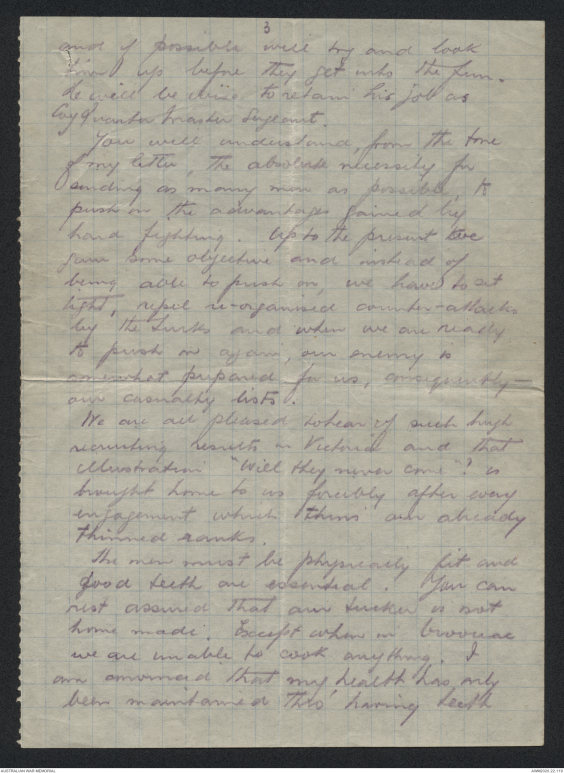 3
and if possible will try and look
him up before they get into the firm.
He will be wise to retain his job as
Coy Quarter Master Sergeant.
You will understand, from the tone
of my letter, the absolute necessity for
sending as many men as possible, to
push on the advantages gained by
hard fighting. Up to the present we
gain some objective and instead of
being able to push on, we have to sit
tight, repel re-organised counter-attacks
by the Turks and when we are ready
to push on again, our enemy is
somewhat prepared for us, consequently —
our casualty lists.
We are all pleased to hear of such high
recruiting results in Victoria and that
illustration "Will they never come"? is
brought home to us forcibly after every
engagement which thins our already
thinned ranks.
The men must be physically fit and
good teeth are essential. You can
rest assured that our tucker is not
home made. Except when in bivouac
we are unable to cook anything. I
am convinced that my health has only
been maintained thro' having teeth
AUSTRALIAN WAR MEMORIAL